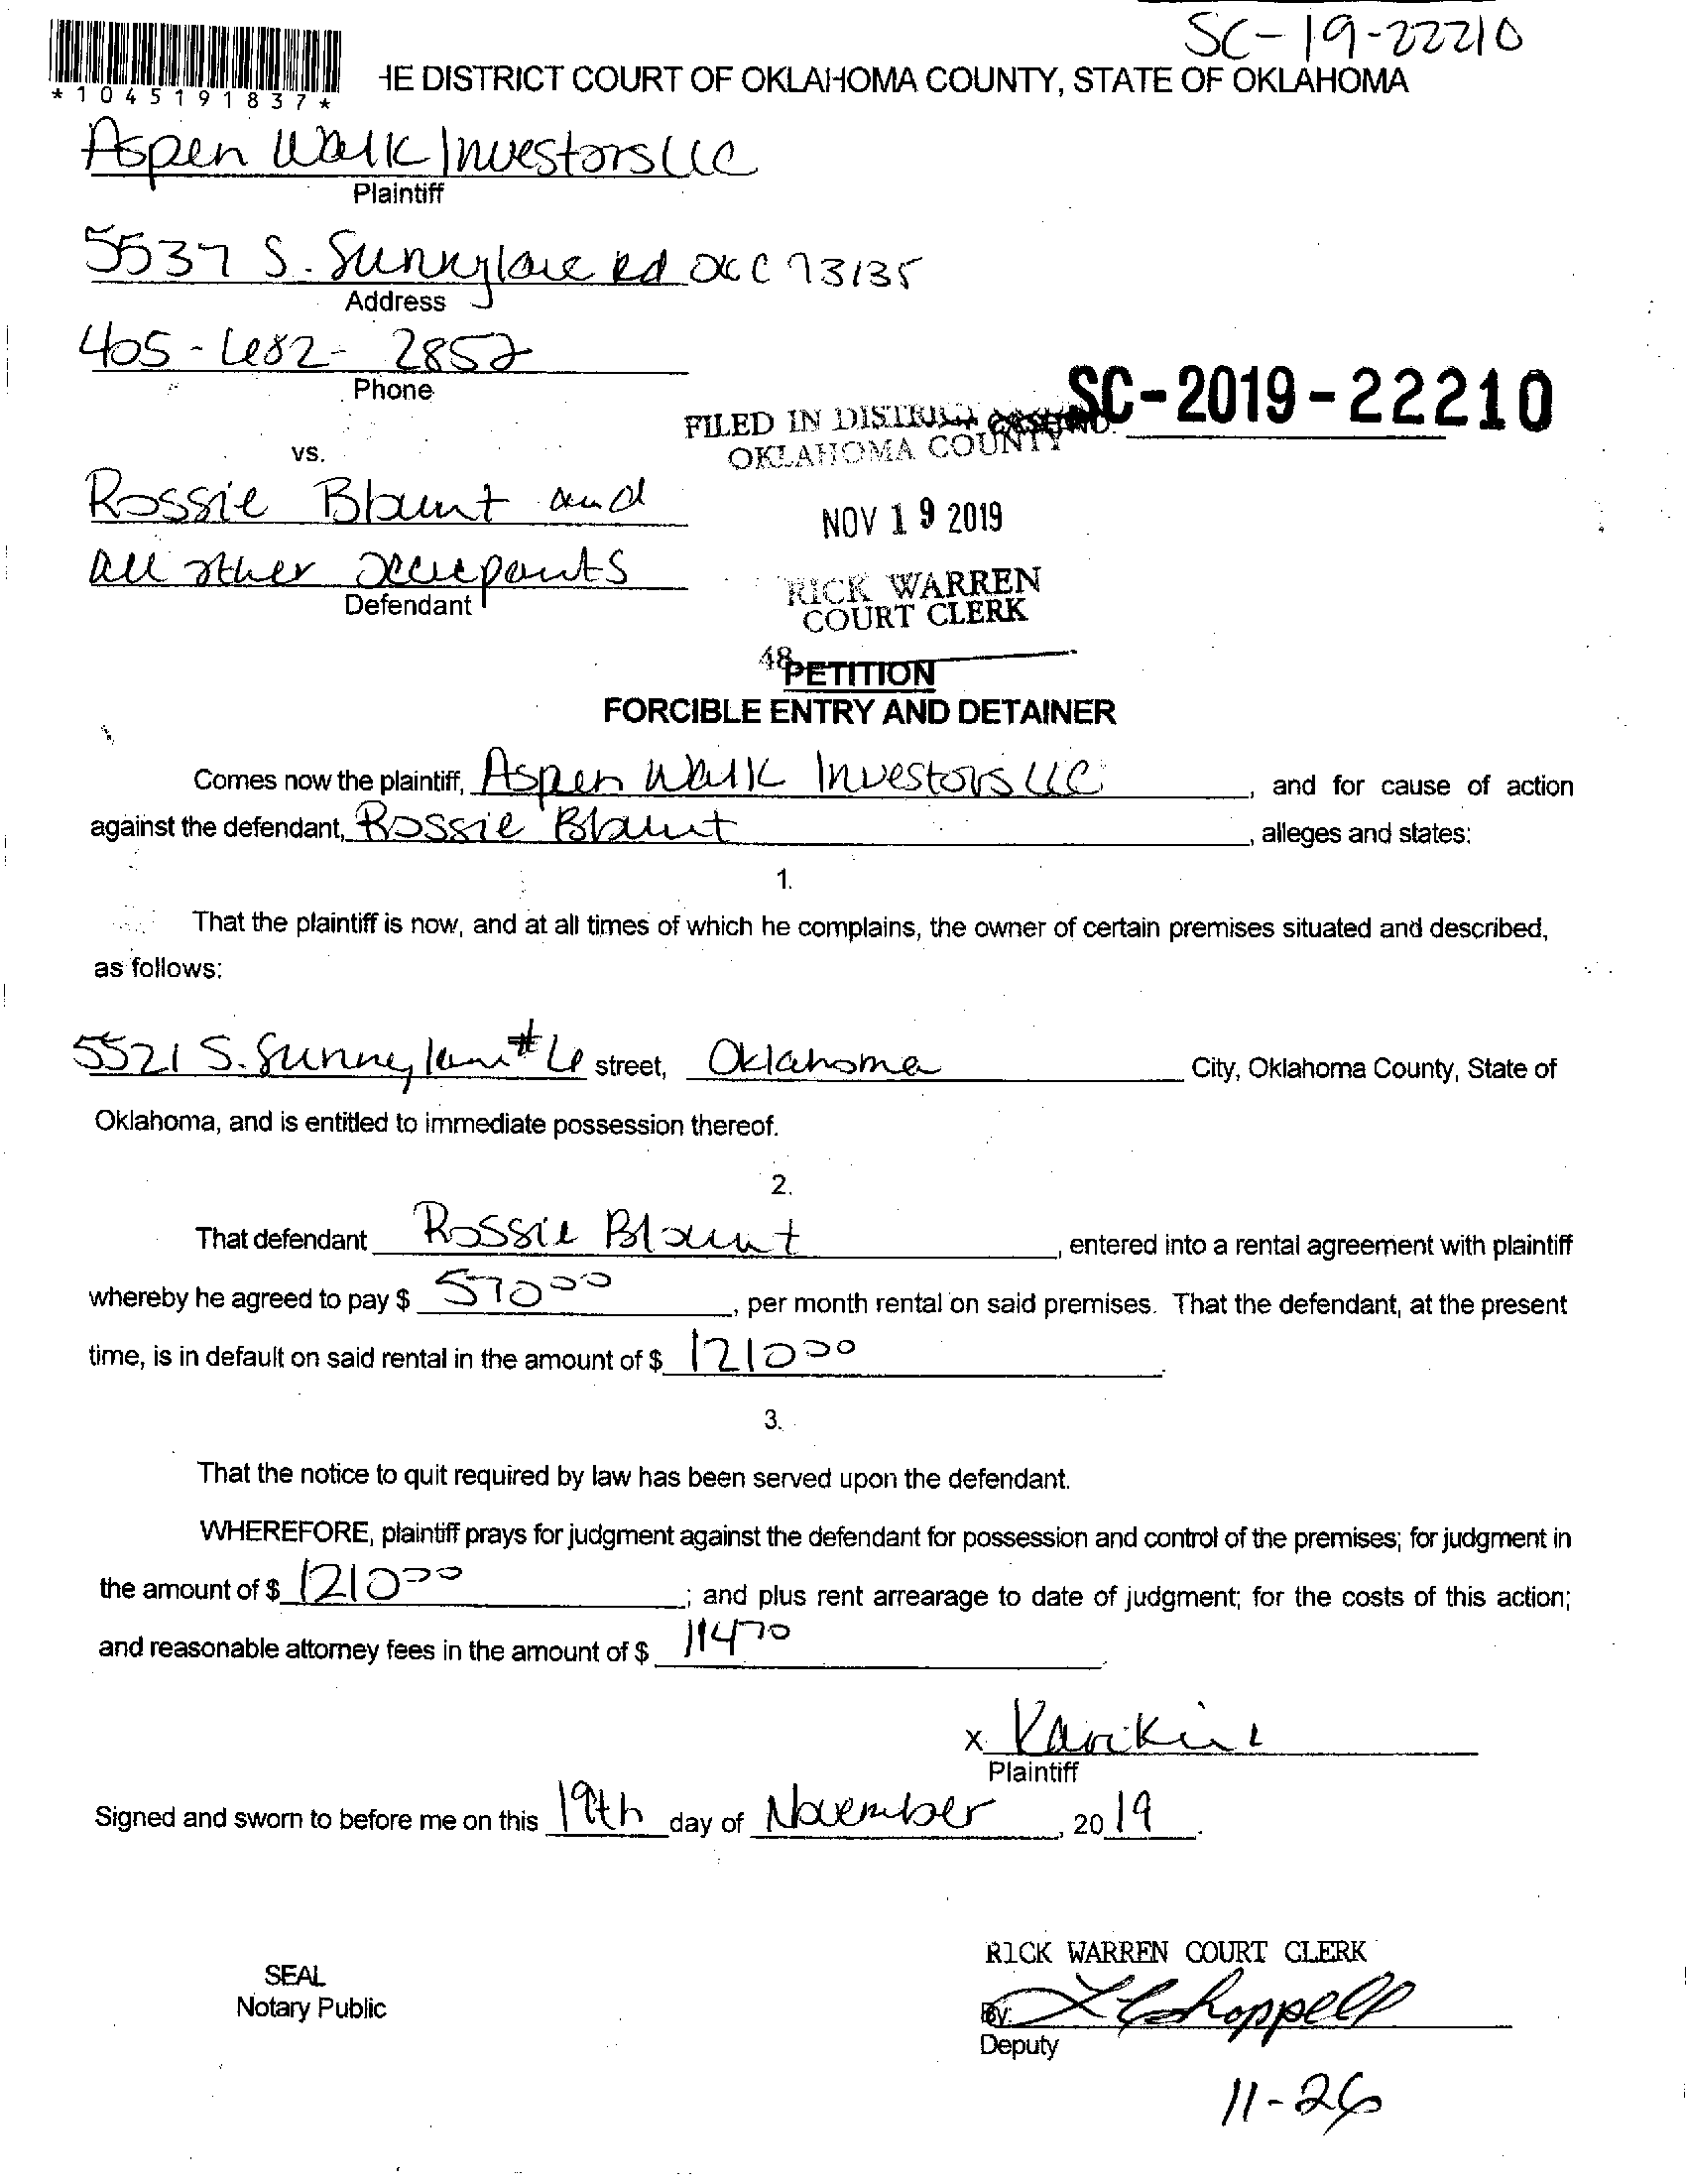 SC-19-22210
*1045191837*
HE DISTRICT COURT OF OKLAHOMA COUNTY, STATE OF OKLAHOMA
Aspen Walk Investors LLC
Plaintiff
5537 S. Sunnylane Rd OKC 73135
Address
405-682-2852
Phone
SC-2019-22210
FILED IN DISTRICT
OKLAHOMA COUNTY
vs.
Rossie Blount and
NOV 19 2019
all other occupants
Defendant
RICK WARREN
COURT CLERK
48
PETITION
FORCIBLE ENTRY AND DETAINER
Comes now the plaintiff, Aspen Walk Investors LLC, and for cause of action
against the defendant, Rossie Blount, alleges and states:
1.
That the plaintiff is now, and at all times of which he complains, the owner of certain premises situated and described,
as follows:
5521 S. Sunnylane #6 street, Oklahoma City, Oklahoma County, State of
Oklahoma, and is entitled to immediate possession thereof.
2.
That defendant Rossie Blount, entered into a rental agreement with plaintiff
whereby he agreed to pay $ 570 00, per month rental on said premises. That the defendant, at the present
time, is in default on said rental in the amount of $ 1210 00.
3.
That the notice to quit required by law has been served upon the defendant.
WHEREFORE, plaintiff prays for judgment against the defendant for possession and control of the premises; for judgment in
the amount of $ 1210 00; and plus rent arrearage to date of judgment; for the costs of this action;
and reasonable attorney fees in the amount of $ 114 70.
x
Plaintiff
Signed and sworn to before me on this 19th day of November, 2019.
RICK WARREN COURT CLERK
SEAL
Notary Public
By:
Deputy
11-26